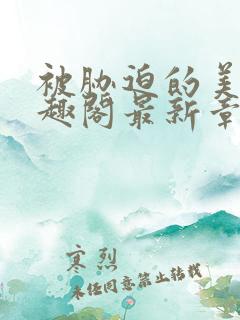 被胁迫的美
趣阁最新章
寒烈
未经同意禁止转载